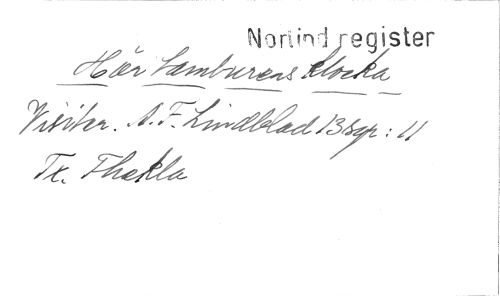 Norlind register
Hör Tamburens klocka
Visiter. A. F. Lindblad 13 sgr: 11
Tx. Thekla